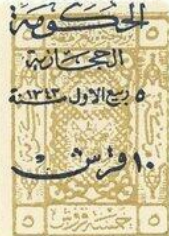 الحكومة
الحجازية
٥ ربيع الاول سنة ١٣٤٣
١٠ قرش
٥
٥
٥ خمسة قروش ٥